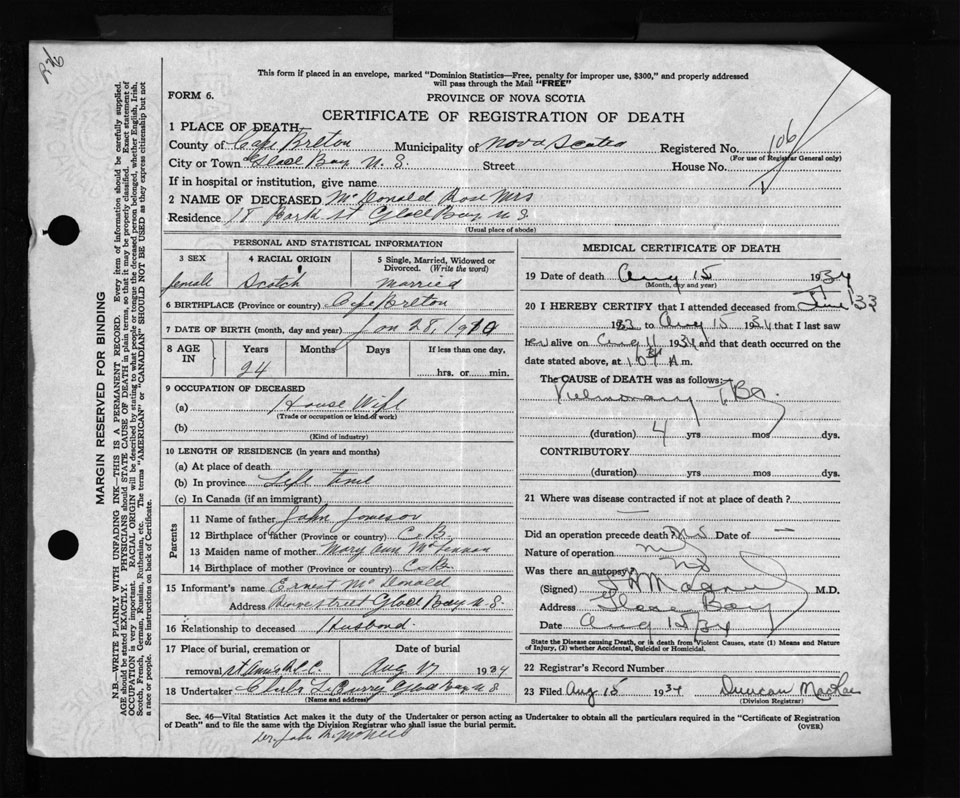 This form if placed in an envelope, marked "Dominion Statistics—Free, penalty for improper use, $300," and properly addressed
will pass through the Mail "FREE"
FORM 6.
PROVINCE OF NOVA SCOTIA
CERTIFICATE OF REGISTRATION OF DEATH
1 PLACE OF DEATH—
County of Cape Breton Municipality of Nova Scotia Registered No. 106
(For use of Registrar General only)
City or Town Glace Bay N. S. Street House No.
If in hospital or institution, give name
2 NAME OF DECEASED McDonald Rose Mrs
Residence 18 Park St Glace Bay N S
(Usual place of abode)
MARGIN RESERVED FOR BINDING
N.B.—WRITE PLAINLY WITH UNFADING INK—THIS IS A PERMANENT RECORD. Every item of information should be carefully supplied.
AGE should be stated EXACTLY. PHYSICIANS should STATE CAUSE OF DEATH in plain terms, so that it may be properly classified. Exact statement of
OCCUPATION is very important. RACIAL ORIGIN will be described by stating to what people or tongue the deceased person belonged, whether English, Irish,
Scotch, French, German, Russian, Ruthenian, etc. The terms "AMERICAN" or "CANADIAN" SHOULD NOT BE USED as they express citizenship but not
a race or people. See instructions on back of Certificate.
PERSONAL AND STATISTICAL INFORMATION
3 SEX 4 RACIAL ORIGIN 5 Single, Married, Widowed or
Divorced. (Write the word)
female Scotch Married
6 BIRTHPLACE (Province or country) Cape Breton
7 DATE OF BIRTH (month, day and year) Jan 28, 1910
8 AGE IN Years Months Days If less than one day,
24 hrs. or min.
9 OCCUPATION OF DECEASED
(a) House Wife
(Trade or occupation or kind of work)
(b)
(Kind of industry)
10 LENGTH OF RESIDENCE (in years and months)
(a) At place of death
(b) In province Life time
(c) In Canada (if an immigrant)
Parents
11 Name of father John
12 Birthplace of father (Province or country) C. B.
13 Maiden name of mother Mary Ann
14 Birthplace of mother (Province or country) C. B.
15 Informant's name Ernest McDonald
Address street Glace Bay N. S.
16 Relationship to deceased Husband
17 Place of burial, cremation or Date of burial
removal St Anns R.C.C. Aug 17 1934
18 Undertaker Curry Glace Bay N. S.
(Name and address)
MEDICAL CERTIFICATE OF DEATH
19 Date of death Aug 15 1934
(Month, day and year)
20 I HEREBY CERTIFY that I attended deceased from June '33
1933 to Aug 15 1934 that I last saw
her alive on Aug 11 1934 and that death occurred on the
date stated above, at 10 A.m.
The CAUSE OF DEATH was as follows:
Pulmonary T.B.
(duration) 4 yrs mos dys.
CONTRIBUTORY
(duration) yrs mos dys.
21 Where was disease contracted if not at place of death? —
Did an operation precede death? No Date of —
Nature of operation
Was there an autopsy? No
(Signed) M.D.
Address Glace Bay
Date Aug 15/34
State the Disease causing Death, or in death from Violent Causes, state (1) Means and Nature
of Injury, (2) whether Accidental, Suicidal or Homicidal.
22 Registrar's Record Number
23 Filed Aug 15 1934 Duncan MacRae
(Division Registrar)
Sec. 46—Vital Statistics Act makes it the duty of the Undertaker or person acting as Undertaker to obtain all the particulars required in the "Certificate of Registration
of Death" and to file the same with the Division Registrar who shall issue the burial permit.
(OVER)